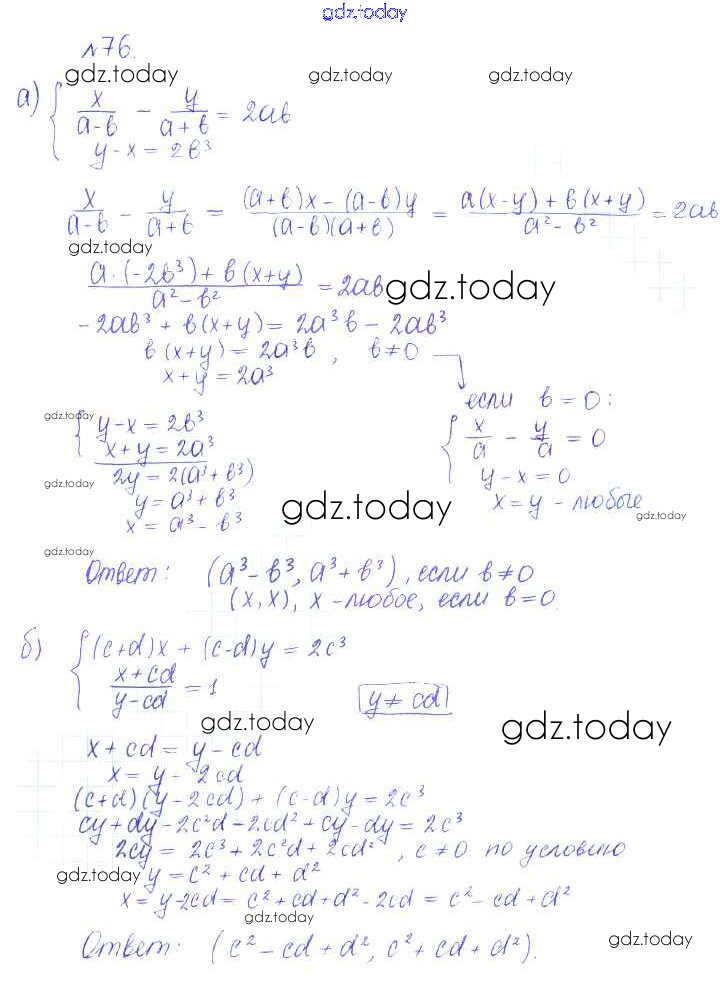 gdz.today
№76.
gdz.today gdz.today gdz.today
а) { x/(a-b) - y/(a+b) = 2ab
y-x = 2b³
x/(a-b) - y/(a+b) = ((a+b)x-(a-b)y)/((a-b)(a+b)) = (a(x-y)+b(x+y))/(a²-b²) = 2ab
gdz.today
(a·(-2b³)+b(x+y))/(a²-b²) = 2ab
gdz.today
-2ab³ + b(x+y) = 2a³b - 2ab³
b(x+y) = 2a³b, b≠0
x+y = 2a³
если b=0:
gdz.today
{ y-x = 2b³
x+y = 2a³
2y = 2(a³+b³)
gdz.today
y = a³+b³
x = a³-b³
{ x/a - y/a = 0
y-x = 0
x=y - любое
gdz.today
gdz.today
gdz.today
Ответ: (a³-b³, a³+b³), если b≠0
(x,x), x-любое, если b=0.
б) { (c+d)x + (c-d)y = 2c³
(x+cd)/(y-cd) = 1
y≠cd
gdz.today
gdz.today
x+cd = y-cd
x = y-2cd
(c+d)(y-2cd)+(c-d)y = 2c³
cy+dy-2c²d-2cd²+cy-dy = 2c³
2cy = 2c³+2c²d+2cd², c≠0 по условию
gdz.today
y = c²+cd+d²
x = y-2cd = c²+cd+d²-2cd = c²-cd+d²
gdz.today
Ответ: (c²-cd+d², c²+cd+d²).
gdz.today